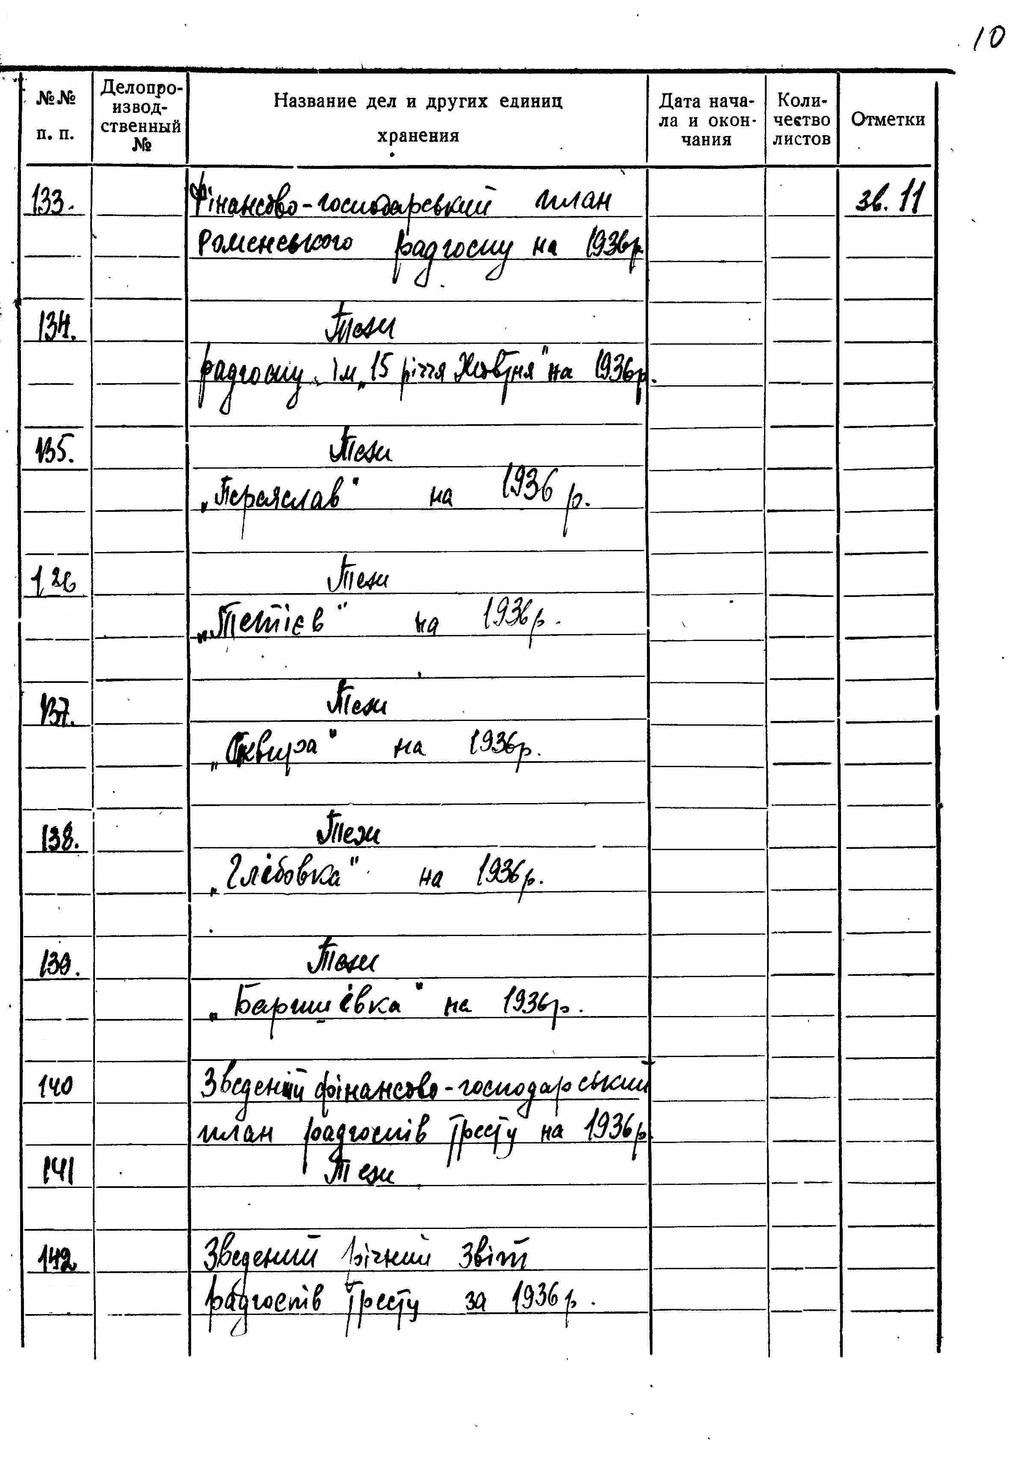 10
№№ п. п.
Делопроизводственный №
Название дел и других единиц хранения
Дата начала и окончания
Количество листов
Отметки
133. Фінансово-господарський план зв. 11
Роменського радгоспу на 1936р
134. Тези
радгоспу ім „15 річчя Жовтня" на 1936р.
135. Тези
„Переяслав" на 1936 р.
126 Тези
„Тетієв" на 1936р.
137. Тези
„Сквира" на 1936р.
138. Тези
„Глебовка" на 1936р.
139. Тези
„Баришівка" на 1936р.
140 Зведений фінансово-господарський
план радгоспів тресту на 1936р
141 Тези
142 Зведений річний звіт
радгоспів тресту за 1936р.